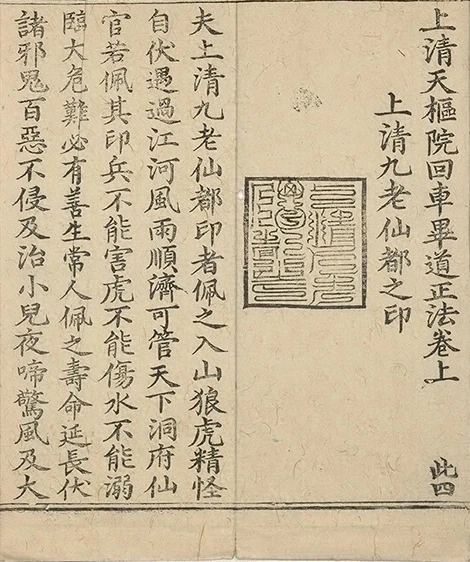 上清天樞院回車畢道正法卷上
此四
上清九老仙都之印
夫上清九老仙都印者佩之入山狼虎精怪
自伏遇過江河風雨順濟可管天下洞府仙
官若佩其印兵不能害虎不能傷水不能溺
臨大危難必有善生常人佩之壽命延長伏
諸邪鬼百惡不侵及治小兒夜啼驚風及大